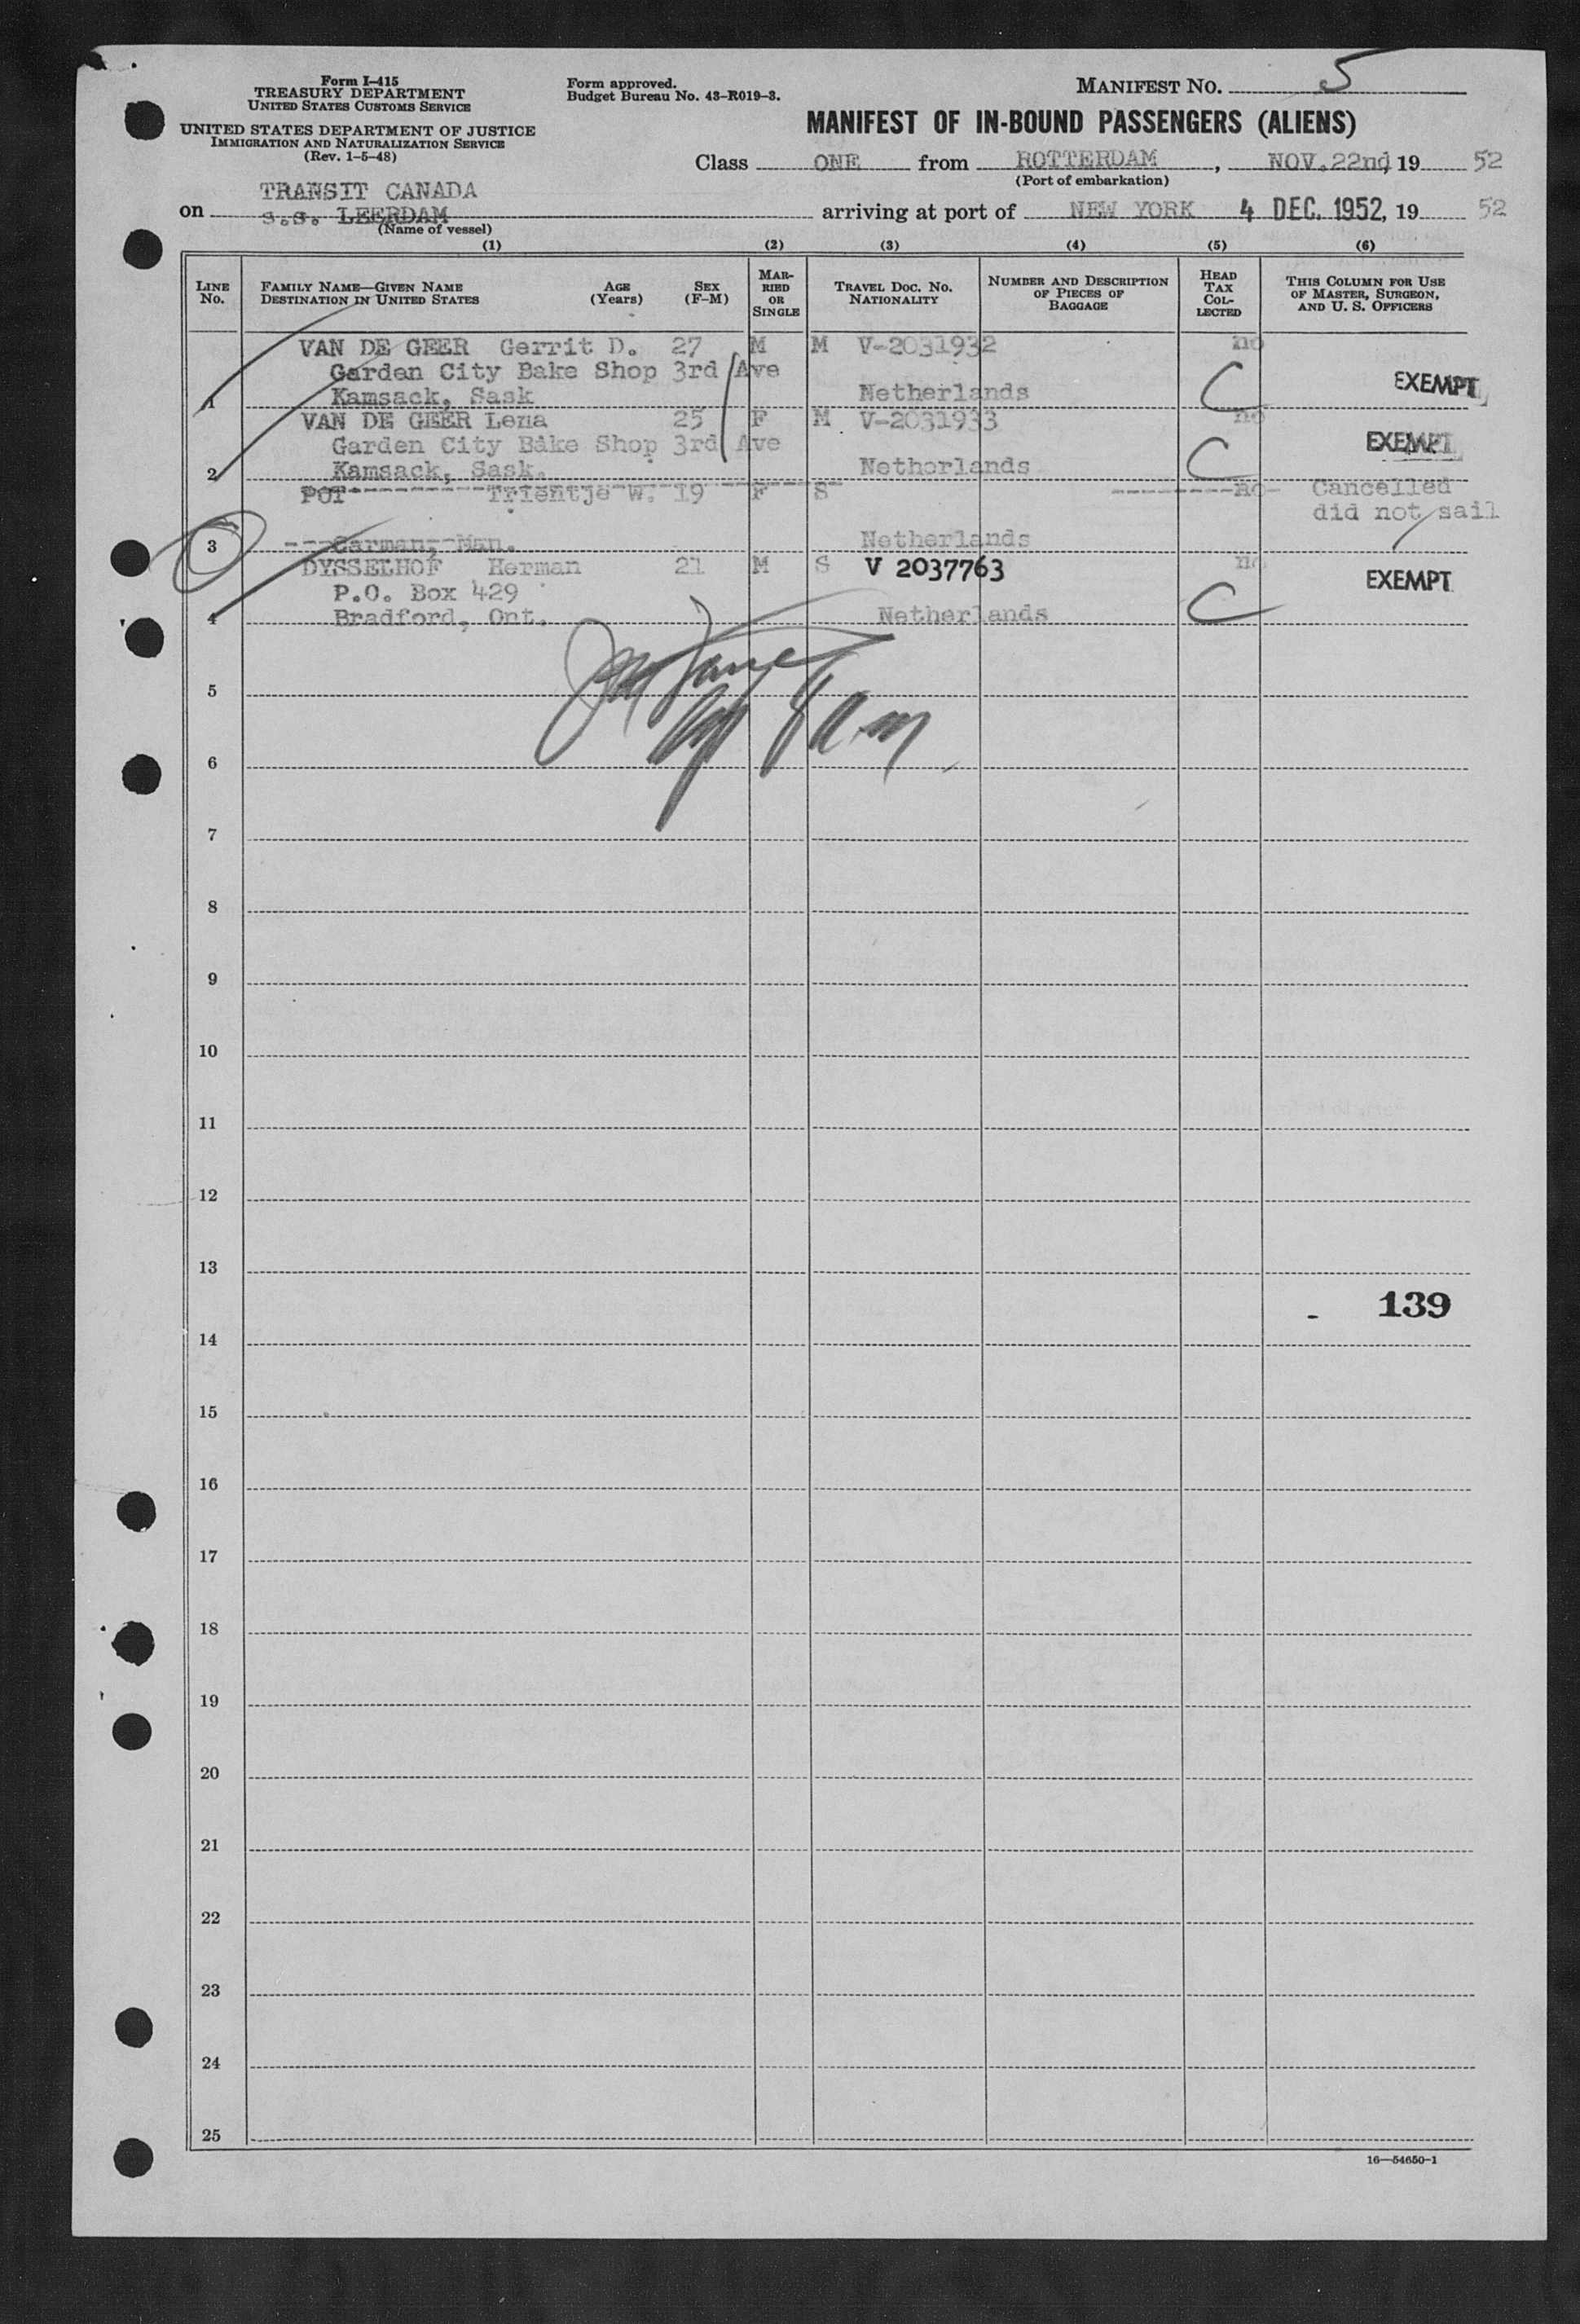 Form I-415
TREASURY DEPARTMENT
UNITED STATES CUSTOMS SERVICE
UNITED STATES DEPARTMENT OF JUSTICE
IMMIGRATION AND NATURALIZATION SERVICE
(Rev. 1-5-48)
Form approved.
Budget Bureau No. 43-R019-3.
MANIFEST NO. 5
MANIFEST OF IN-BOUND PASSENGERS (ALIENS)
Class ONE from ROTTERDAM, NOV.22nd, 19 52
(Port of embarkation)
TRANSIT CANADA
on s.s. LEERDAM arriving at port of NEW YORK 4 DEC. 1952, 19 52
(Name of vessel)
(1) (2) (3) (4) (5) (6)
LINE No. FAMILY NAME—GIVEN NAME DESTINATION IN UNITED STATES AGE (Years) SEX (F-M) MARRIED OR SINGLE TRAVEL DOC. NO. NATIONALITY NUMBER AND DESCRIPTION OF PIECES OF BAGGAGE HEAD TAX COLLECTED THIS COLUMN FOR USE OF MASTER, SURGEON, AND U. S. OFFICERS
VAN DE GEER Gerrit D. 27 M M V-2031932 no
Garden City Bake Shop 3rd Ave C EXEMPT
1 Kamsack, Sask Netherlands
VAN DE GEER Lena 25 F M V-2031933 no
Garden City Bake Shop 3rd Ave C EXEMPT
2 Kamsack, Sask. Netherlands
POT Trientje W. 19 F S no Cancelled
did not sail
3 Carman, Man. Netherlands
DYSSELHOF Herman 21 M S V 2037763 no
P.O. Box 429 C EXEMPT
4 Bradford, Ont. Netherlands
5
6
7
8
9
10
11
12
13
139
14
15
16
17
18
19
20
21
22
23
24
25
16—54650-1